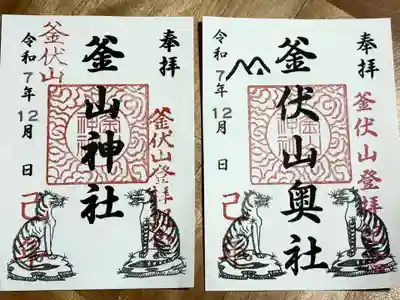 奉拝
釜山神社
釜伏山
令和7年12月 日
釜伏山登拝
己
奉拝
釜伏山奥社
令和7年12月 日
釜伏山登拝
己